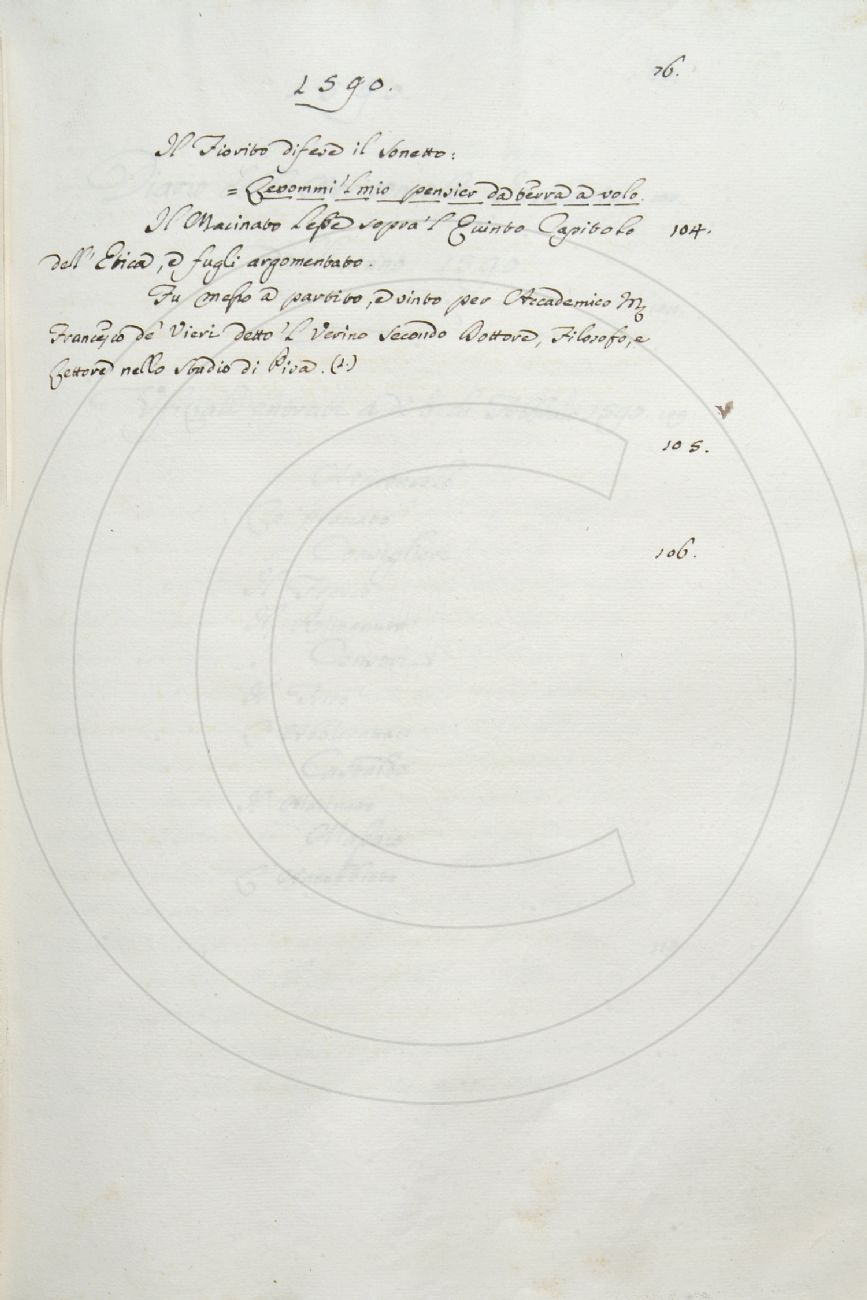 1590.
76.
Il Fiorito difese il Sonetto:
= Levommi 'l mio pensier da terra a volo.
Il Macinato Lesse sopra 'l Quinto Capitolo 104.
dell' Etica, e fugli argomentato.
Fu messo a partito, e vinto per Accademico Mo
Francesco de' Vieri detto 'l Verino Secondo Dottore, Filosofo, e
Lettore nello studio di Pisa. (1.)
105.
106.